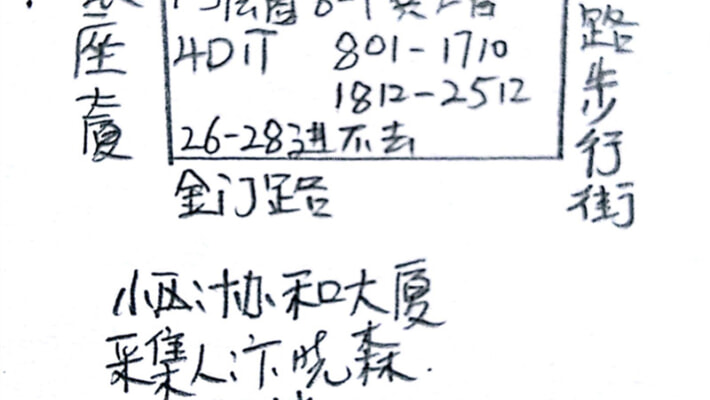 座大厦
4D订 801-1710
1812-2512
26-28进不去
路步行街
金门路
小区:协和大厦
采集人:卞晓森.